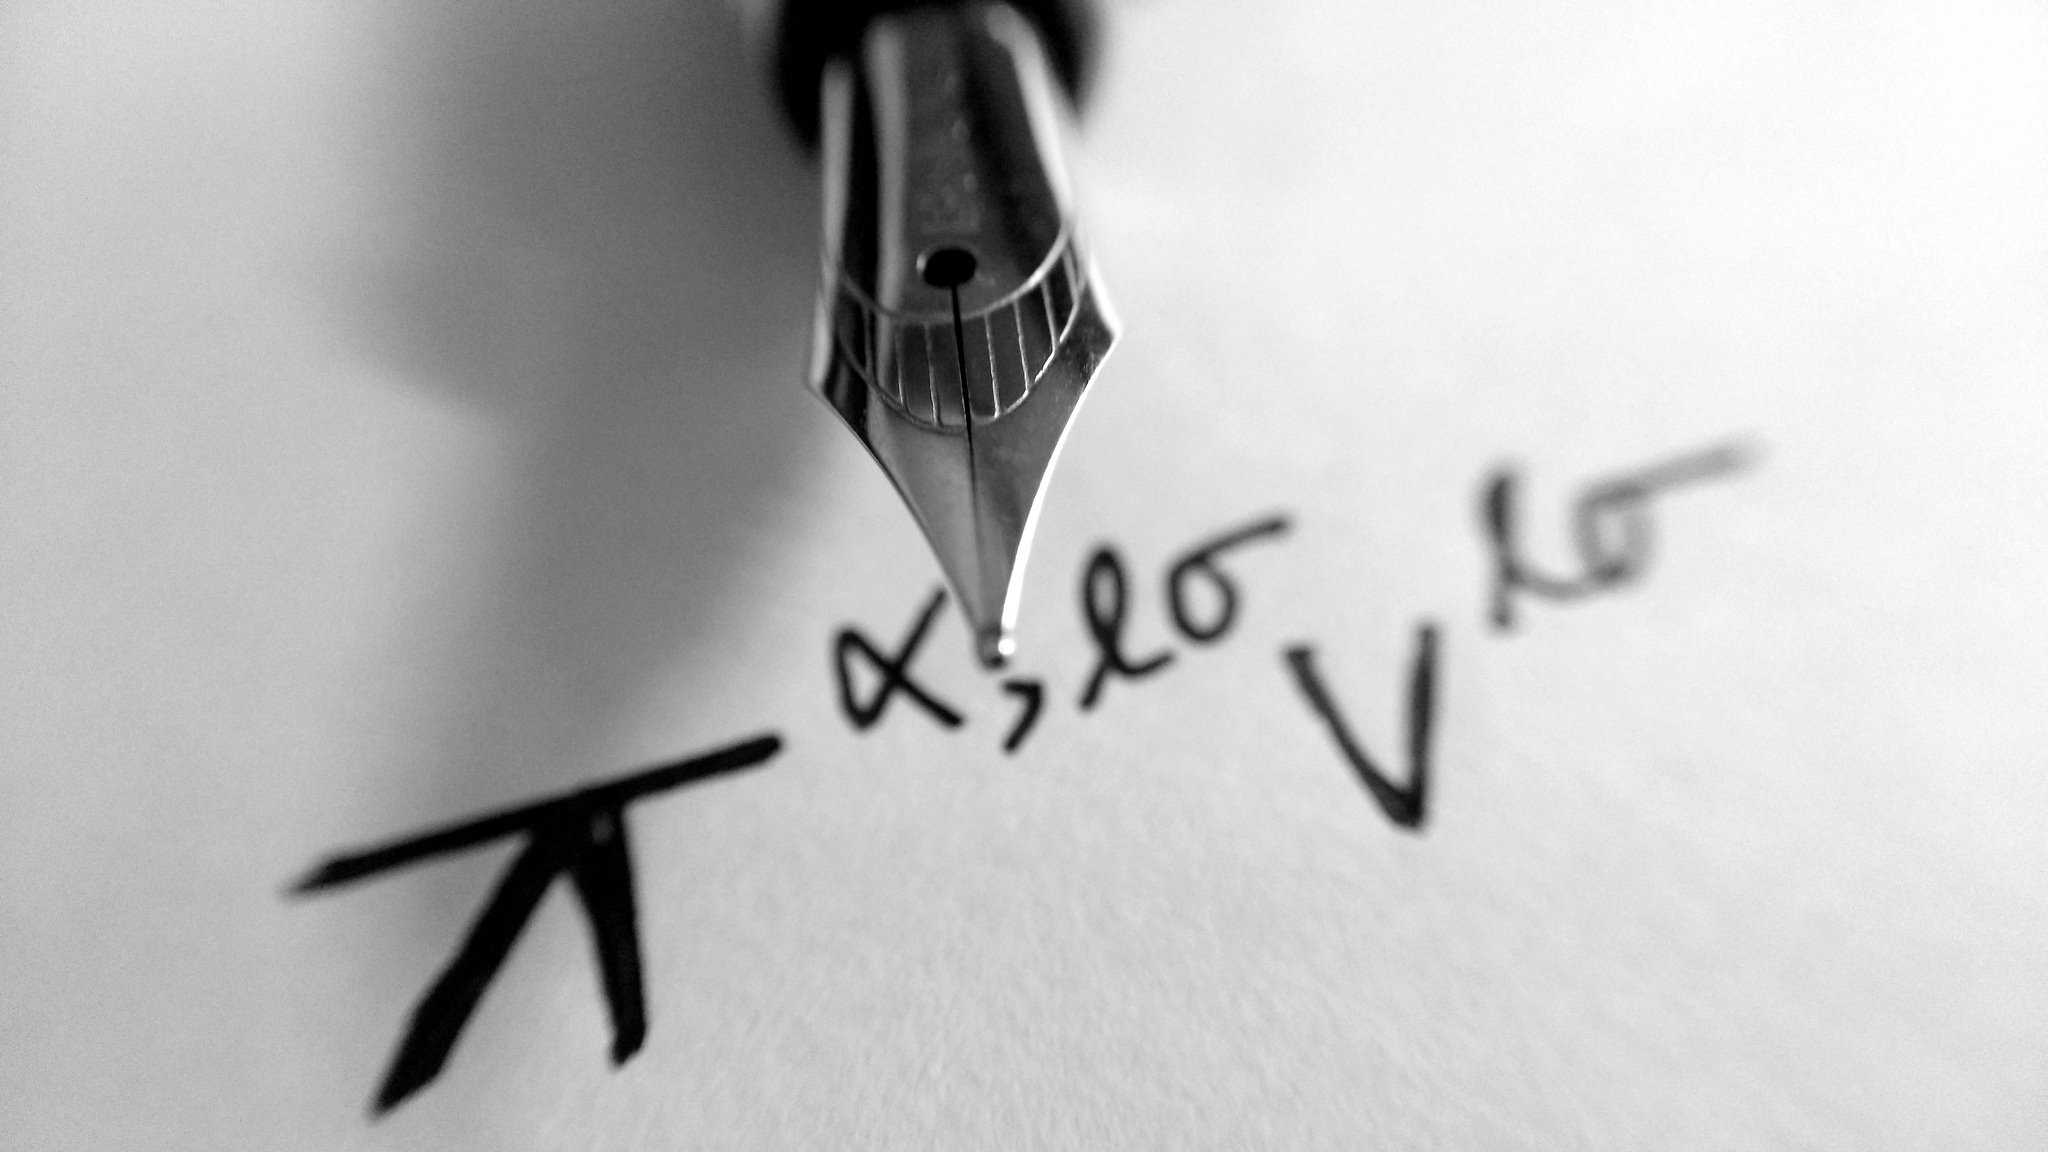 π^α,ℓσ V^ℓσ